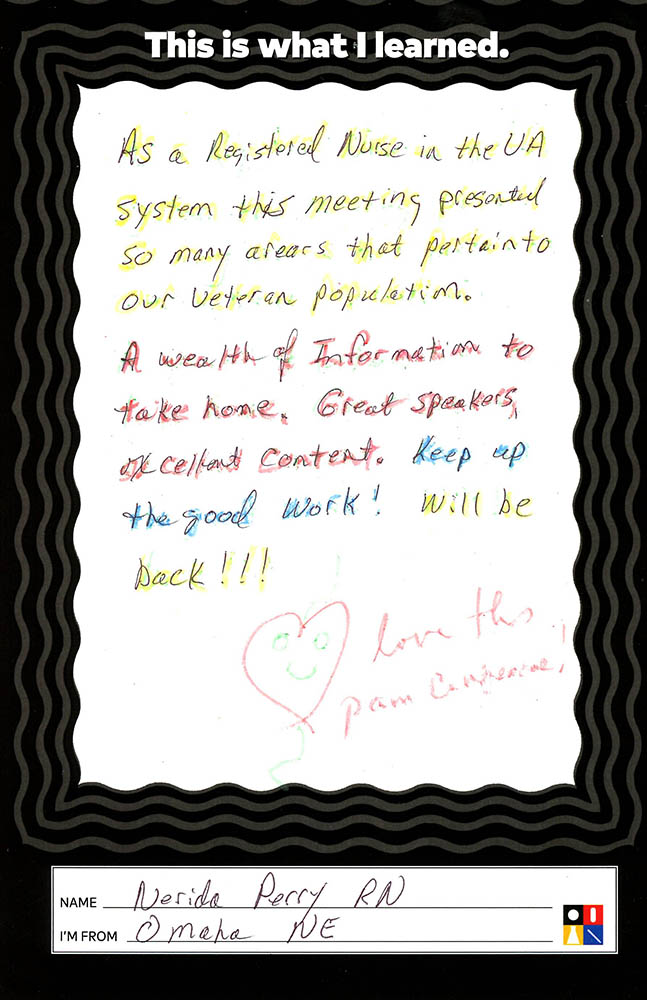 This is what I learned.
As a Registered Nurse in the VA
system this meeting presented
so many arears that pertain to
our Veteran population.
A wealth of Information to
take home. Great speakers,
excellent content. Keep up
the good work! Will be
back!!!
love this
pain
NAME Nerida Perry RN
I'M FROM Omaha NE